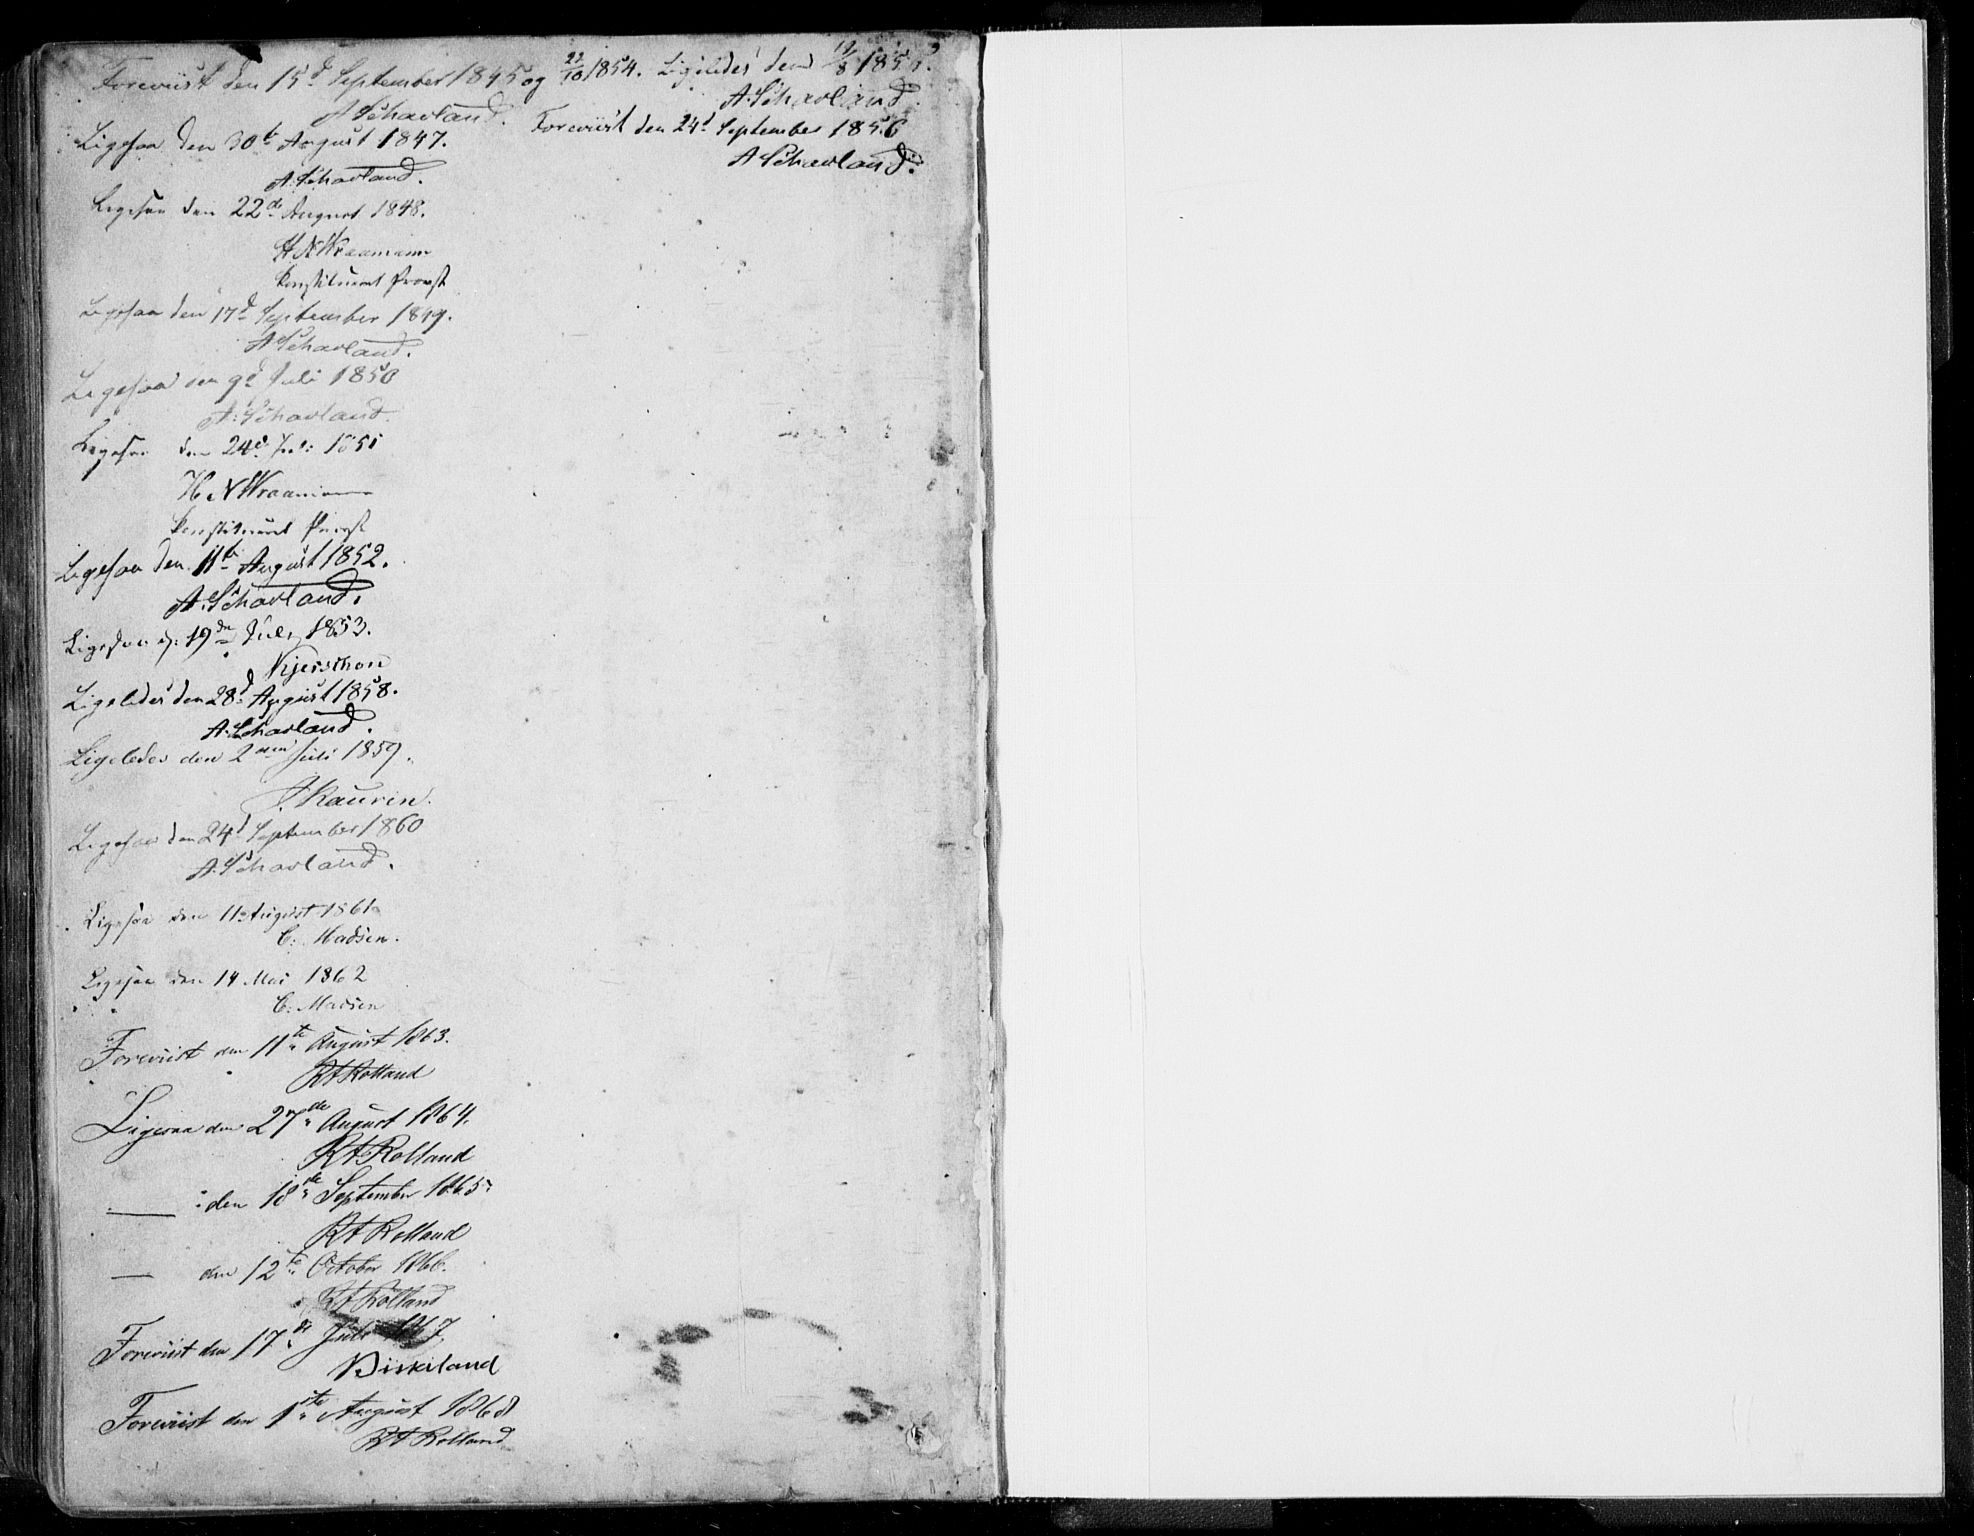 Foreviist den 15d September 1845 og 22/10 1854. Ligeledes den 19/8 185
A. Schavland. A. Schavland.
Ligesaa den 30te August 1847. Foreviist den 24d September 1856
A. Schavland. A Schavland.
Ligesaa den 22de August 1848.
H N Wraamann
konstitueret Provst
Ligesaa den 17d September 1849.
A Schavland.
Ligesaa den 9d Juli 1850
A. Schavland.
Ligesaa den 24de Juli 1851
H N Wraamann
konstitueret Provst
Ligesaa den 11te August 1852.
A. Schavland.
Ligesaa d. 19de Juli 1853.
Kjerschow
Ligeledes den 28d August 1858.
A. Schavland.
Ligeledes den 2den Juli 1859.
Kaurin.
Ligesaa den 24d September 1860
A. Schavland.
Ligesaa den 11 August 1861
C. Madsen.
Ligesaa den 14 Mai 1862
C. Madsen
Foreviist den 11te August 1863.
RA Rolland
Ligesaa den 27de August 1864.
RA Rolland
— den 18de September 1865
RA Rolland
— den 12te October 1866.
RA Rolland
Foreviist den 17de Juli 1867.
Foreviist den 1ste August 1868
RA Rolland